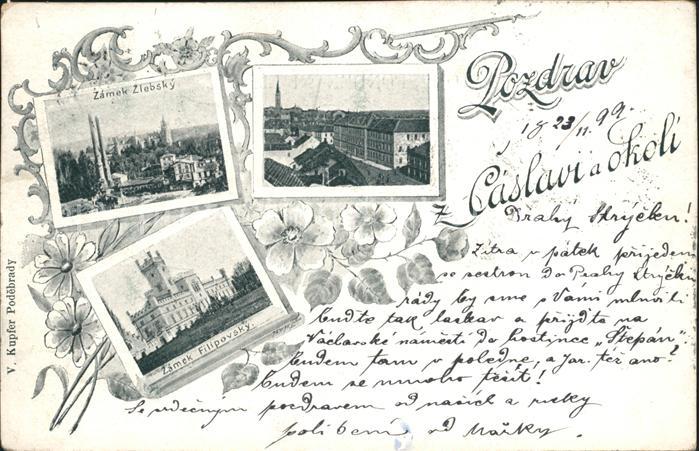 Zámek Žlebský
Pozdrav
18 23/11 99.
z Čáslavi a okolí
Drahý Strýčku!
Zítra v pátek přijedem
se sestrou do Prahy strýčku
rády by sme s Vámi mluvili
buďte tak laskav a přijďte na
Václavské náměstí do hostince „Štěpán"
budem tam v poledne, a Jar. též ano?
budem se mnoho těšit!
Se srdečným pozdravem od našich a
políbení od Mářky.
Zámek Filipovský.
V. Kupfer Poděbrady